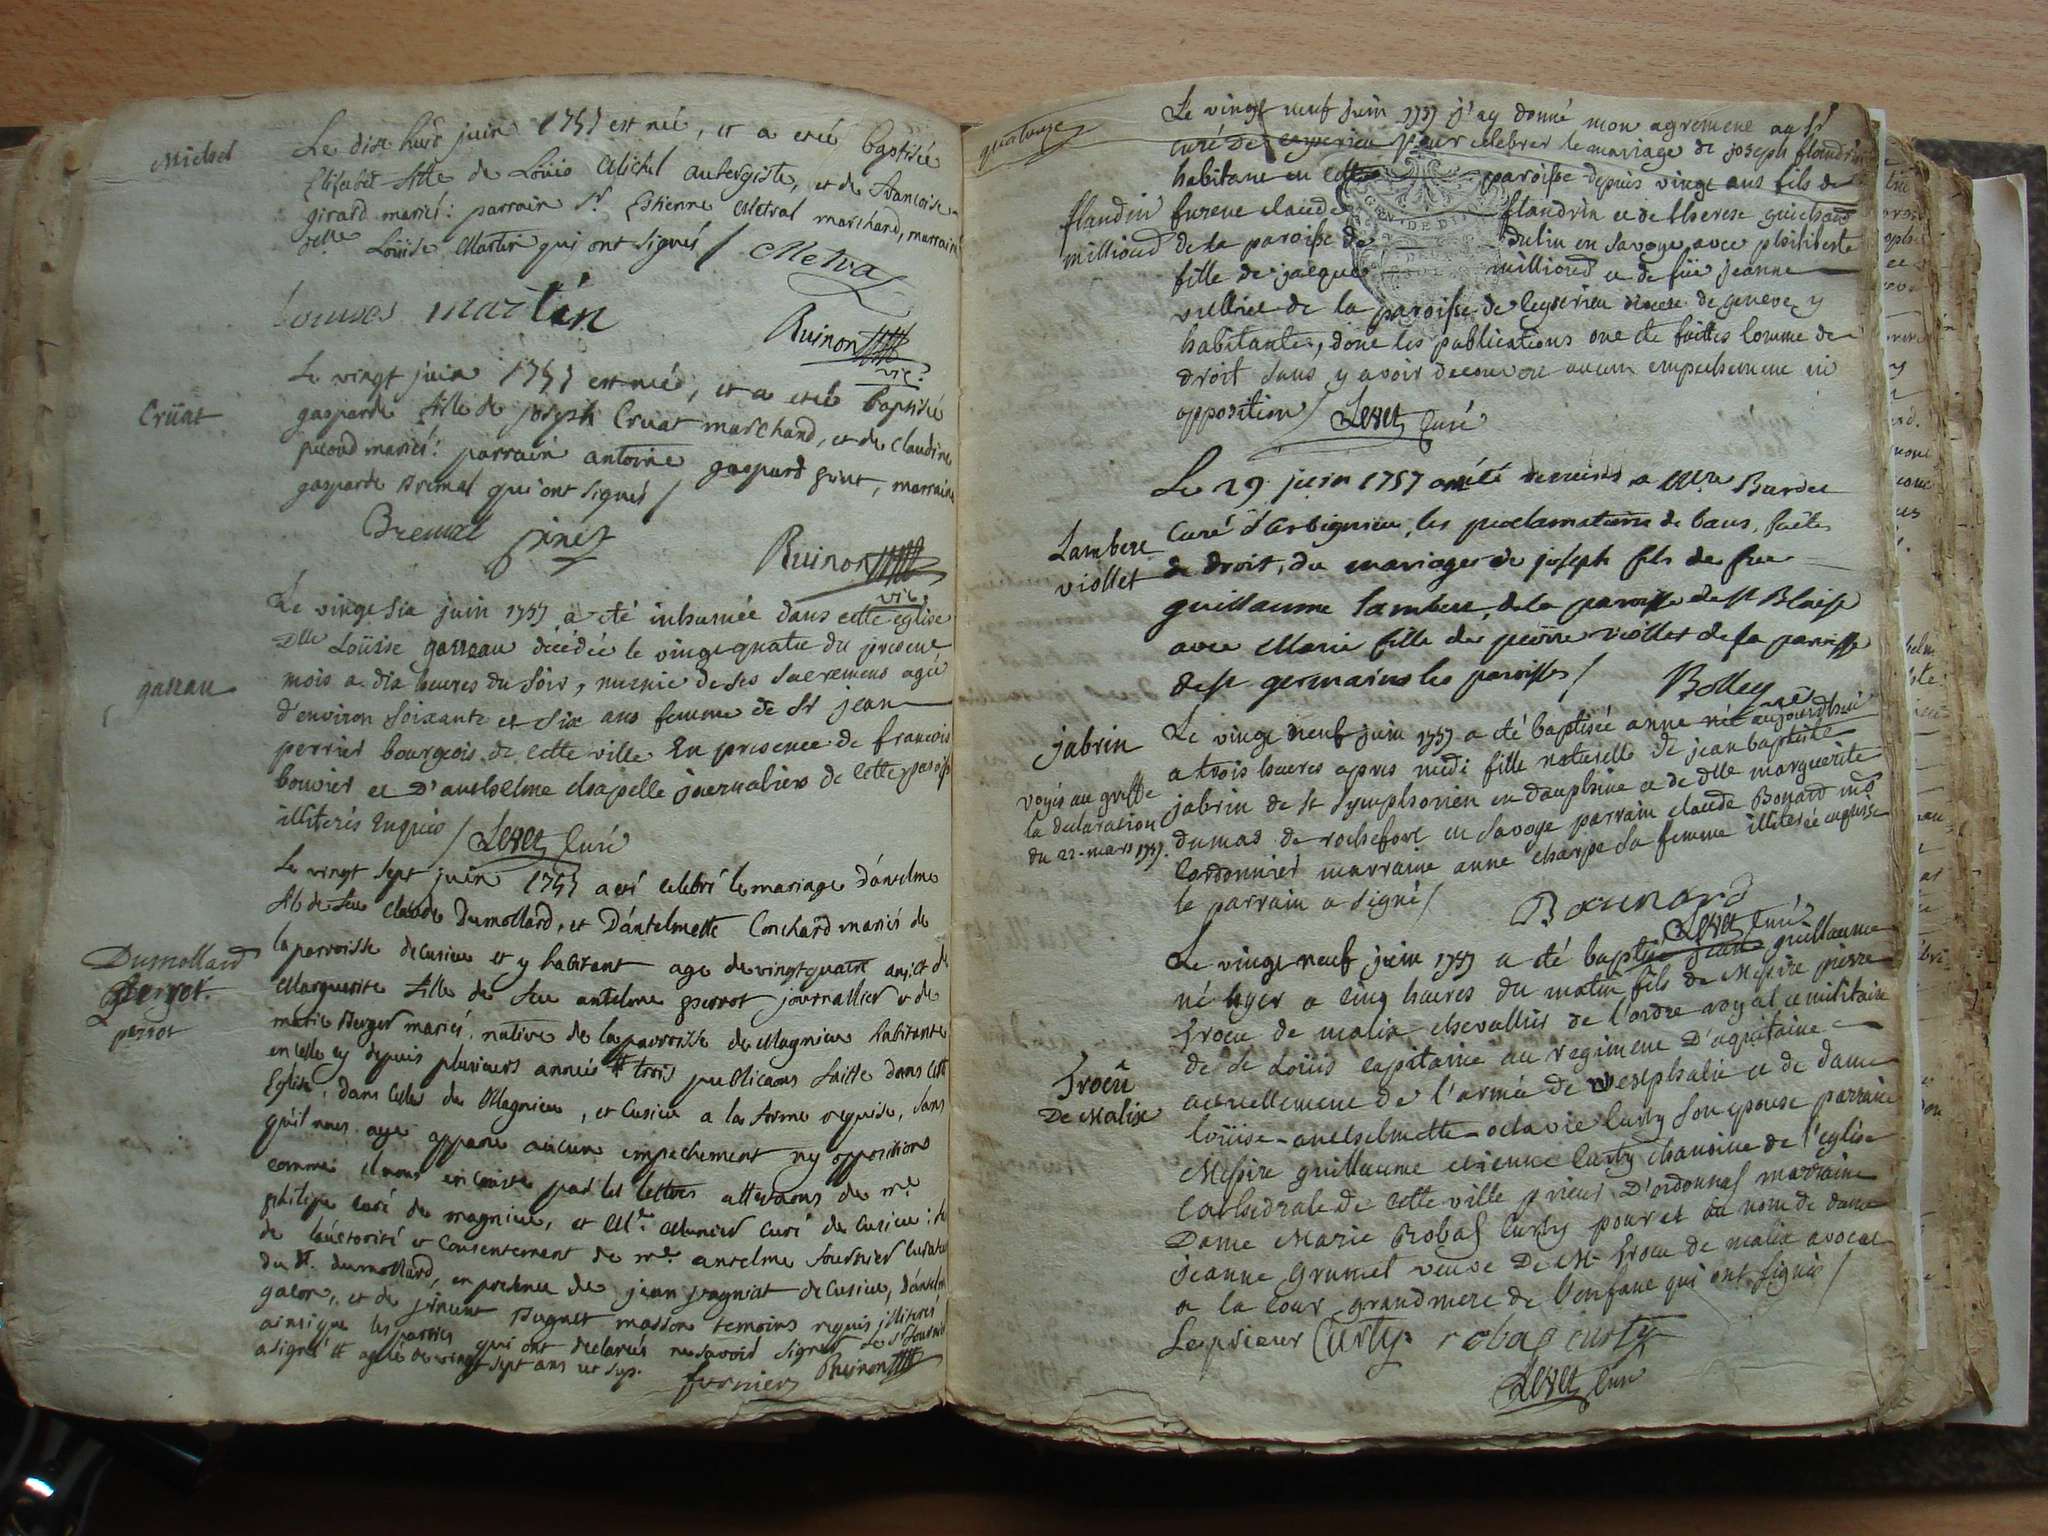 Michel
Le dix huit juin 1757 est née, et a etée baptisée
Elisabet fille de Loüis Michel aubergiste, et de francoise
girard mariés: parrain Sr Estienne Metral marchand, marraine
delle Loüise Martin qui ont signés / Metra
Louises martin
Ruinon vic.
Crüat
Le vingt juin 1757 est née, et a etée baptisée
gasparde fille de joseph Cruat marchand, et de Claudine
mariés: parrain antoine gaspard ginet, marraine
gasparde Bremal qui ont signés /
Bremal ginet
Ruinon vic.
gazeau
Le vingt six juin 1757 a eté inhumée dans cette eglise
Dlle Loüise gazeau décédée le vingt quatre du present
mois a dix heures du soir, munie de ses sacremens agée
d'environ soixante et six ans femme de Sr jean
perrier bourgeois de cette ville En presence de francois
bouvier et D'anthelme chapelle journaliers de cette paroisse
illiterés enquis / Levet Curé
Dumollard
perrot
Le vingt sept juin 1757 a eté celebré le mariage d'anselme
fils de feu Claude Dumollard, et D'antelmette Conchard mariés de
la parroisse de Cusieu et y habitant age de vingt quatre ans, et de
Marguerite fille de feu antelme perrot journallier et de
marie Berger mariés, native de la parroisse de Magnieu habitante
en celle cy depuis plusieurs années # trois publicaons faitte dans cette
Eglise, dans celles de Magnieu, et Cusieu a la forme requise, sans
qu'il nous aye apparu aucun empechement ny oppositions
comme il nous en conste par les lettres attestaons de mre
philipe curé de magnieu, et Mre Munier curé de Cusieu: de
de l'auctorité et consentement de mre anselme fournier curateur
du dt. dumollard, en presence de jean pagniat de Cusieu, d'anselme
galon, et de vincent Bugnet masson temoins requis illiterés
ainsi que les parties qui ont declarés ne savoir signer Le Sr fournier
a signé # agée de vingt sept ans ut sup.
furnier Ruinon
quatorze
flandrin
milliond
Le vingt neuf juin 1757 j'ay donné mon agrement au Sr
curé de ceyserieu pour celebrer le mariage de joseph flandrin
habitant en cette paroisse depuis vingt ans fils de
furent claude flandrin et de therese guichard
de la paroisse de dulin en Savoye avec philiberte
fille de jacque milliond et de füe jeanne
vulliet de la paroisse de Ceyserieu diocese de geneve y
habitante, dont les publications ont eté faittes comme de
droit sans y avoir decouvert aucun empechement ni
opposition / Levet Curé
Lambert
viollet
Le 29 juin 1757 on été remises a Mre Bardet
curé d'Arbignieu, les proclamations de bans, faites
de droit, du mariage de joseph fils de feu
guillaume lambert, de la paroisse de st Blaise
avec Marie fille de pierre viollet de la paroisse
de st germain les paroisses / Bolley
jabrin
voyés au greffe
la declaration
du 22 mars 1757.
Le vingt neuf juin 1757 a eté baptisée anne née aujourdhui
a trois heures apres midi fille naturelle de jean baptiste
jabrin de st Symphorien en dauphine et de dlle marguerite
dumas de rochefort en Savoye parrain claude Bonard md
Cordonnier marraine anne charpe sa femme illiterée enquise
le parrain a signé / Bounard
Levet Curé
Trocu
De Malix
Le vingt neuf juin 1757 a eté baptisé jean guillaume
né hyer a cinq heures du matin fils de Messire pierre
Trocu de malix chevallier de l'ordre royal et militaire
de st Loüis capitaine au regiment D'aquitaine
actuellement de l'armée de westphalie et de dame
loüise-anthelmette-octavie Curty son epouse parrain
Messire guillaume etienne Curty chanoine de l'eglise
Cathedrale de cette ville prieur D'ordonnas marraine
Dame Marie Robas Curty pour et au nom de dame
jeanne Grumet veuve De Mr Trocu de malix avocat
a la cour grandmere de l'enfant qui ont signés /
Leprieur Curty. robas curty
Levet Curé